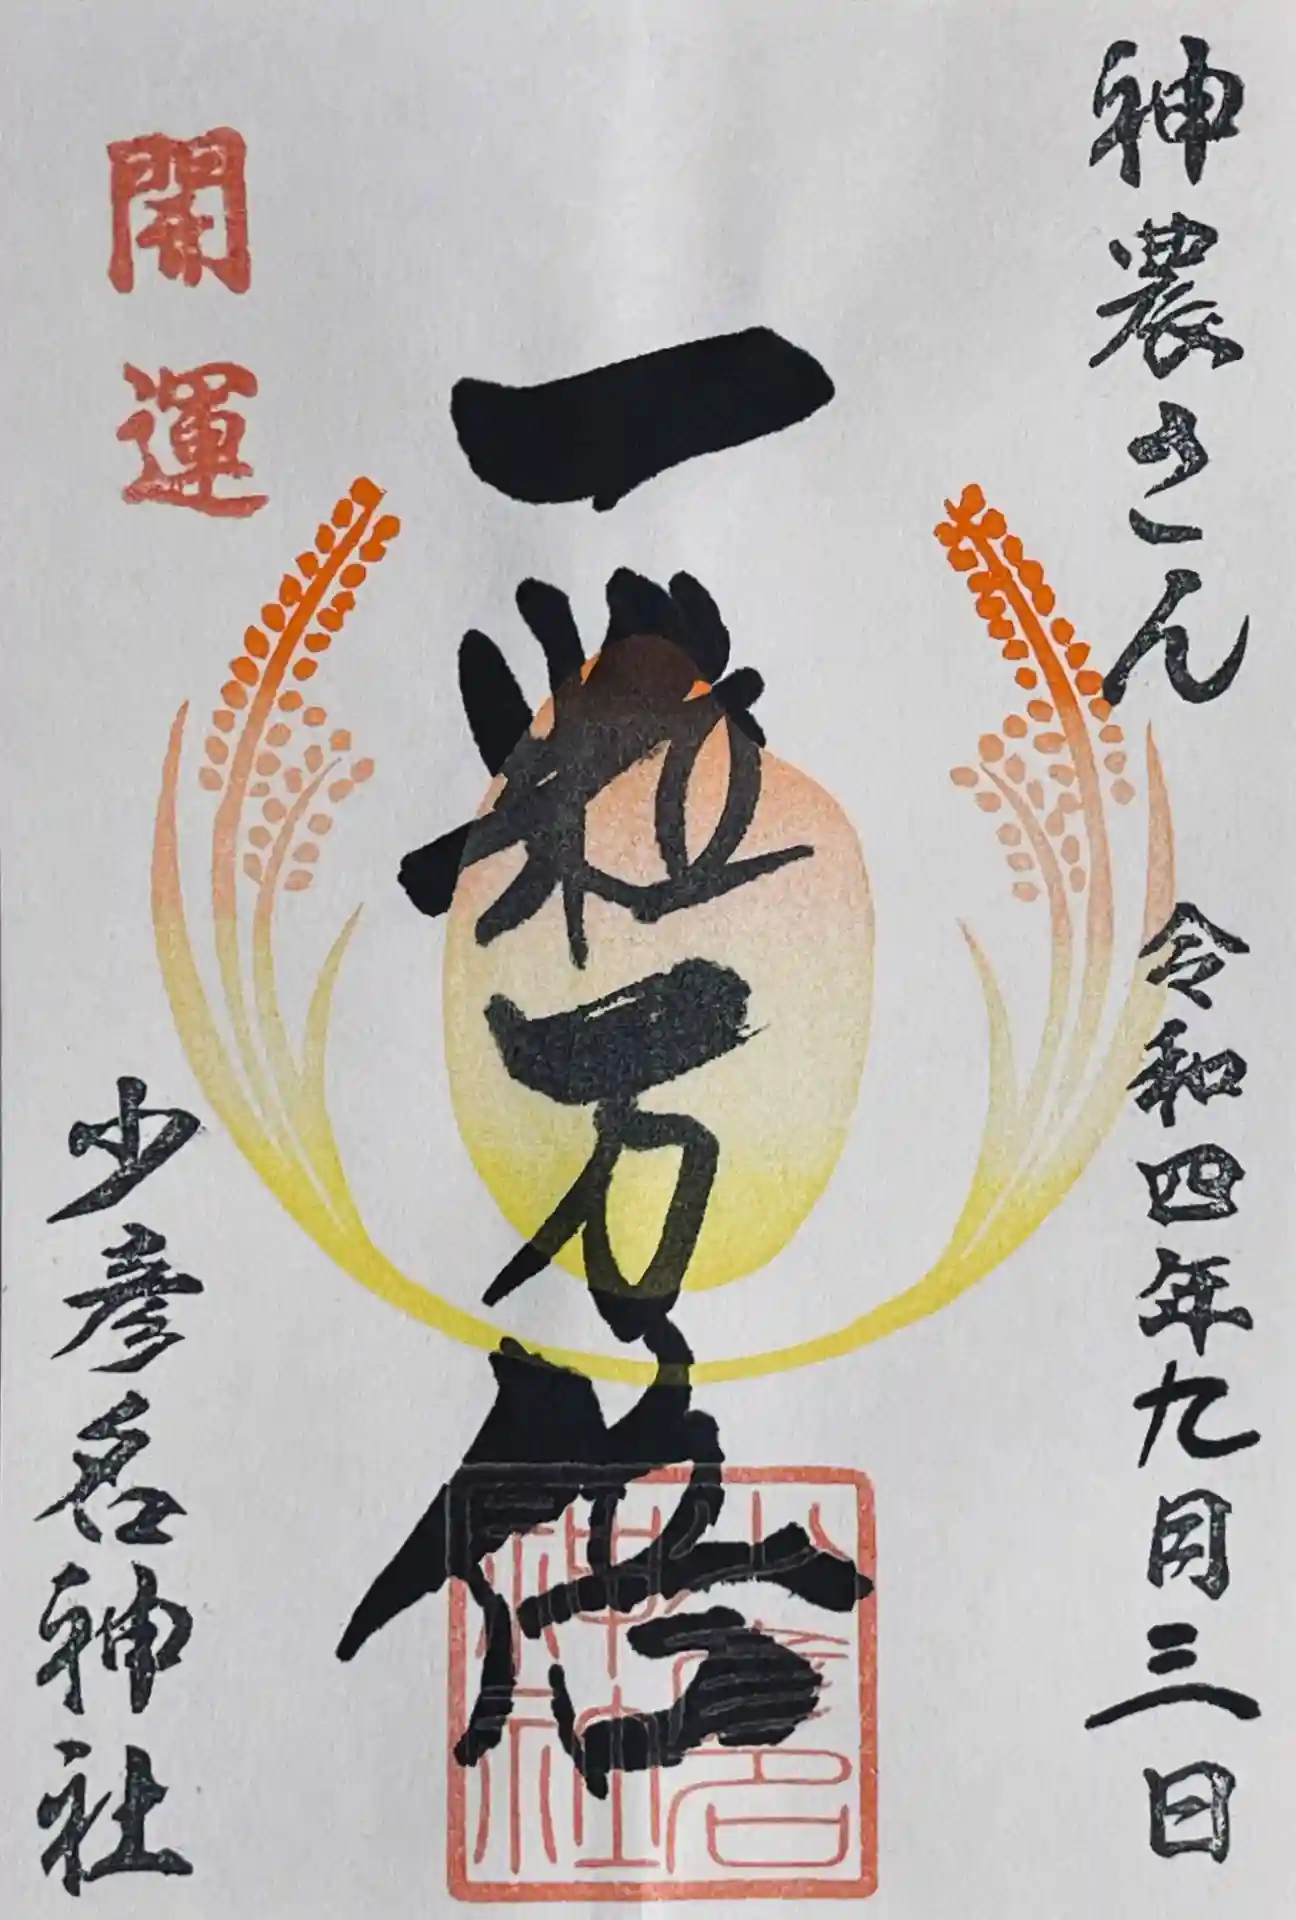 神農さん
令和四年九月三日
一粒万倍
少彦名神社
開運
少彦名神社